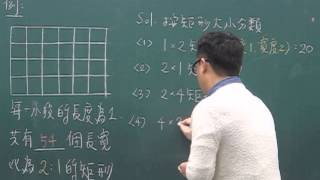 例:
每一小段的長度為1.
共有 54 個長寬
比為2:1的矩形
Sol: 按矩形大小分類
<1> 1×2矩
寬度2)=20
<2> 2×1矩
<3> 2×4矩
<4> 4×